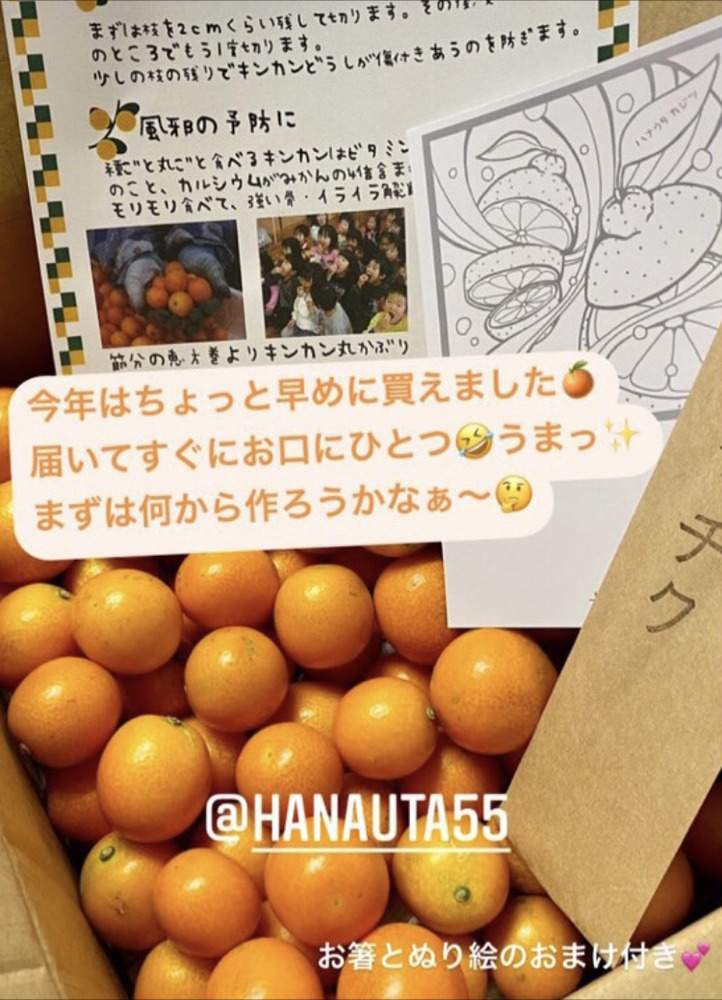 まずは枝を2cmくらい残して切ります。その後、
のところでもう1度切ります。
少しの枝の残りでキンカンどうしが傷付きあうのを防ぎます。
風邪の予防に
種ごと丸ごと食べるキンカンはビタミン
のこと、カルシウムがみかんの4倍含ま
モリモリ食べて、強い骨・イライラ解消
節分の恵方巻よりキンカン丸かぶり
ハナウタカジツ
今年はちょっと早めに買えました🍊
届いてすぐにお口にひとつ🤣うまっ✨
まずは何から作ろうかなぁ〜🤔
チク
@HANAUTA55
お箸とぬり絵のおまけ付き💕